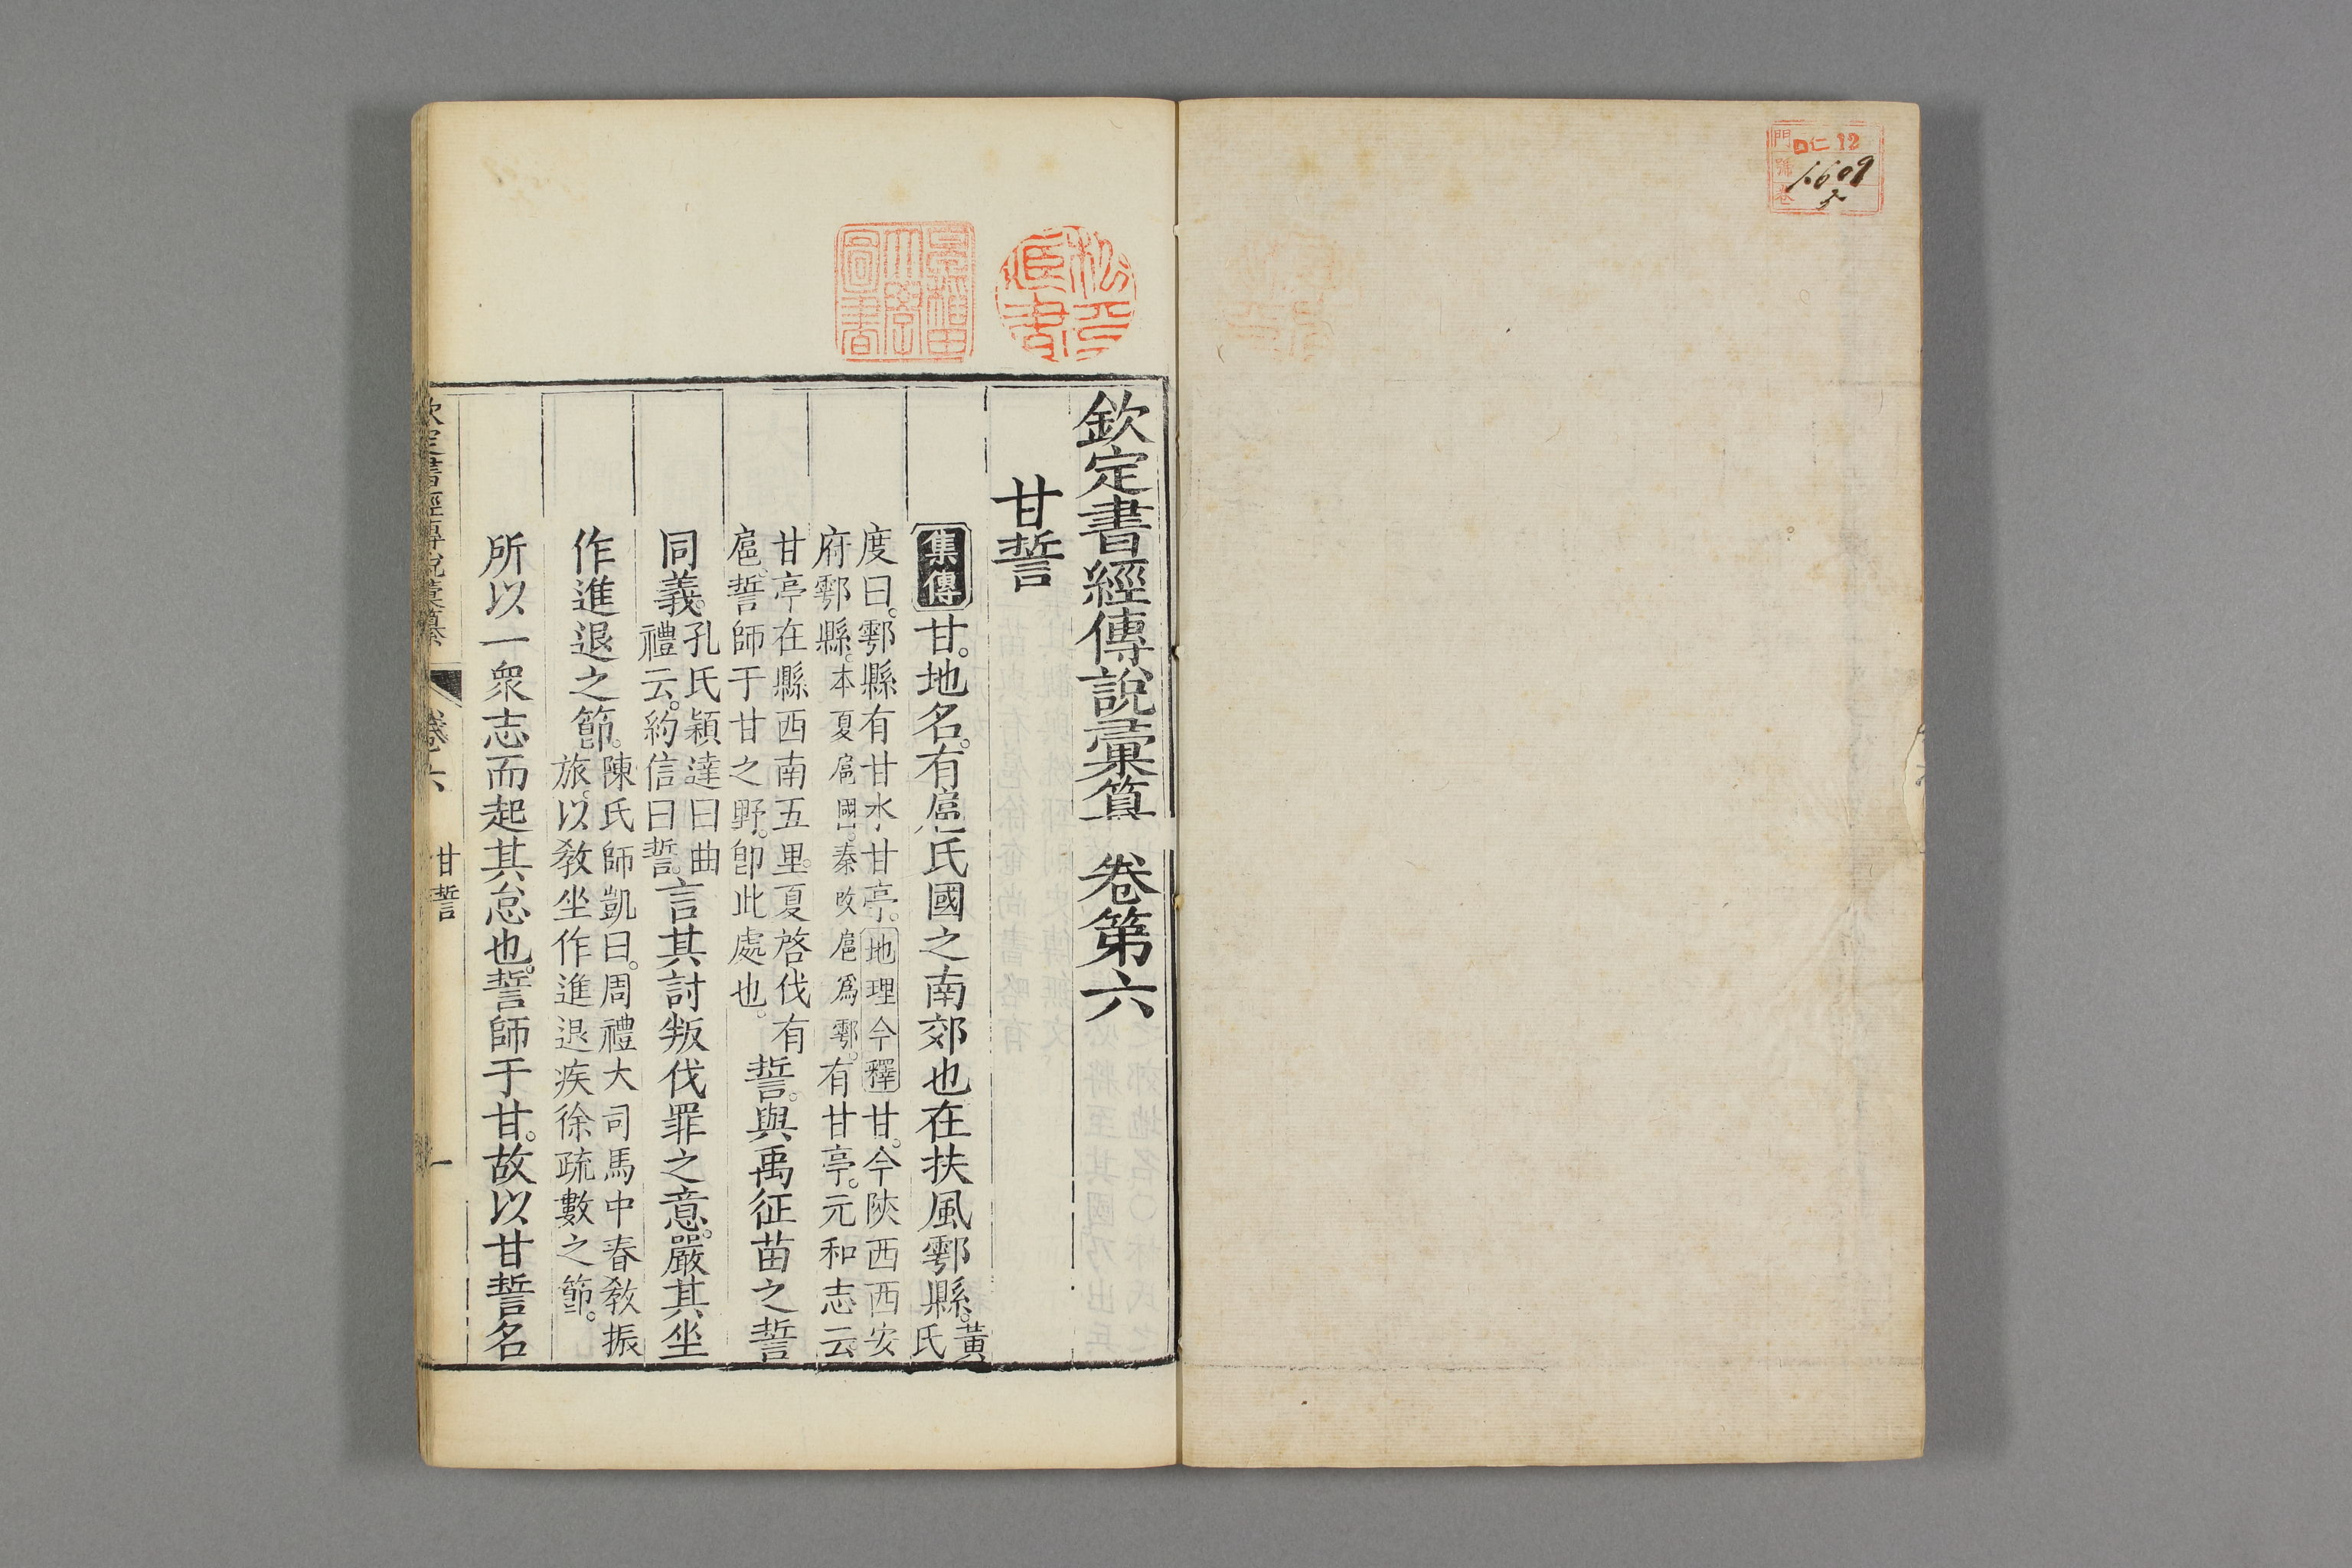 門 口仁 12
號 1609
卷 5
欽定書經傳說彙纂 卷第六
甘誓
集傳 甘。地名。有扈氏國之南郊也。在扶風鄠縣。黃氏
度曰。鄠縣有甘水甘亭。地理今釋 甘。今陝西西安
府鄠縣。本夏扈國。秦改扈爲鄠。有甘亭。元和志云
甘亭在縣西南五里。夏啓伐有
扈。誓師于甘之野。卽此處也。誓。與禹征苗之誓
同義。孔氏穎達曰曲禮云。約信曰誓。言其討叛伐罪之意。嚴其坐
作進退之節。陳氏師凱曰。周禮大司馬中春敎振
旅。以敎坐作進退疾徐疏數之節。
所以一衆志而起其怠也。誓師于甘。故以甘誓名
欽定書經傳說彙纂 卷六 甘誓 一
松平
圖書